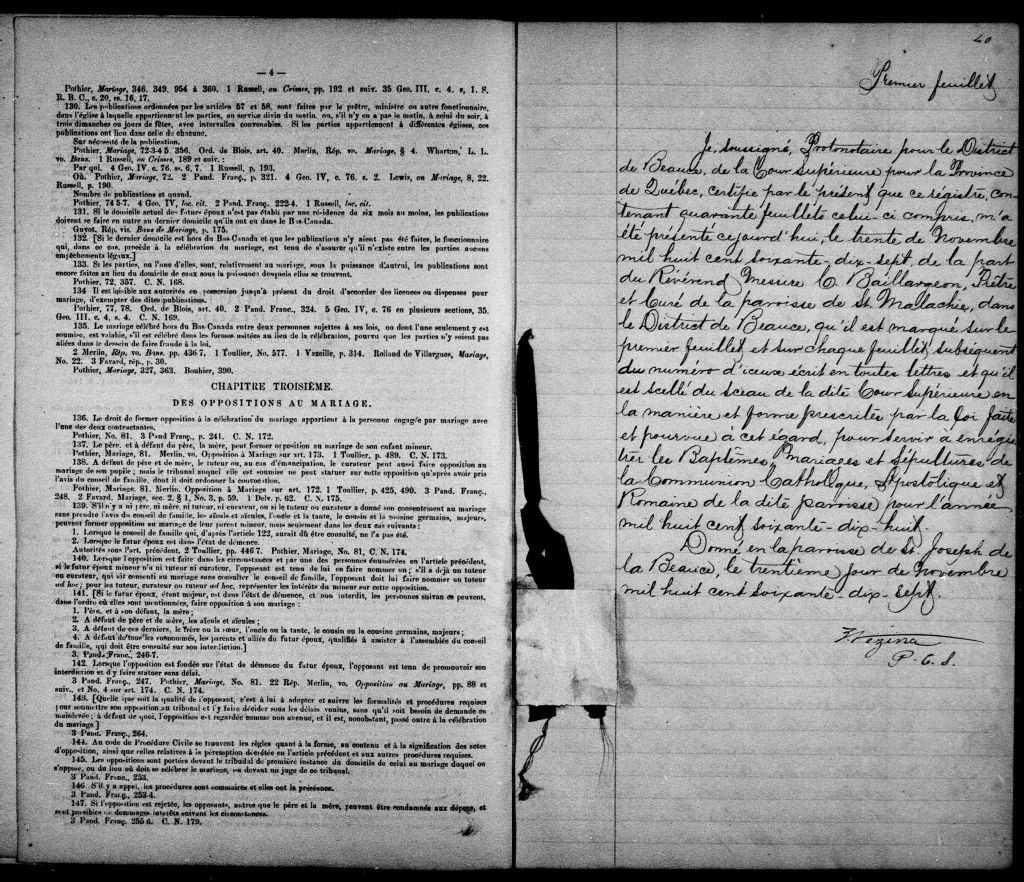 — 4 —
Pothier, Mariage, 346. 349. 954 à 360. 1 Russell, on Crimes, pp. 192 et suiv. 35 Geo. III, c. 4. s, 1. S.
R. B. C., c. 20, ss. 16, 17.
130. Les publications ordonnées par les articles 57 et 58, sont faites par le prêtre, ministre ou autre fonctionnaire,
dans l'église à laquelle appartiennent les parties, au service divin du matin, ou, s'il n'y en a pas le matin, à celui du soir, à
trois dimanches ou jours de fêtes, avec intervalles convenables. Si les parties appartiennent à différentes églises, ces
publications ont lieu dans celle de chacune.
Sur nécessité de la publication.
Pothier, Mariage, 72-3 4 5. 356. Ord. de Blois, art. 40. Merlin, Rép. vo. Mariage, § 4. Wharton, L. L.
vo. Bans. 1 Russell, on Crimes, 189 et suiv. :
Par qui. 4 Geo. IV, c. 76, ss. 6, 7. 1 Russell, p. 193.
Où. Pothier, Mariage, 72. 2 Pand. Franç., p. 321. 4 Geo. IV, c. 76. s. 2. Lewis, on Mariage, 8, 22.
Russell, p. 190.
Nombre de publications et quand.
Pothier, 74 5-7. 4 Geo. IV, loc. cit. 2 Pand. Franç. 222-4. 1 Russell, loc. cit.
131. Si le domicile actuel des futurs époux n'est pas établi par une résidence de six mois au moins, les publications
doivent se faire en outre au dernier domicile qu'ils ont eu dans le Bas-Canada.
Guyot. Rép. vis. Bans de Mariage, p. 175.
132. [Si le dernier domicile est hors du Bas-Canada et que les publications n'y aient pas été faites, le fonctionnaire
qui, dans ce cas, procède à la célébration du mariage, est tenu de s'assurer qu'il n'existe entre les parties aucuns
empêchements légaux.]
133. Si les parties, ou l'une d'elles, sont, relativement au mariage, sous la puissance d'autrui, les publications sont
encore faites au lieu du domicile de ceux sous la puissance desquels elles se trouvent.
Pothier, 72, 357. C. N. 168.
134 Il est loisible aux autorités en possession jusqu'à présent du droit d'accorder des licences ou dispenses pour
mariage, d'exempter des dites publications.
Pothier, 77, 78. Ord. de Blois, art. 40. 2 Pand. Franç., 324. 5 Geo. IV, c. 76 en plusieurs sections, 35.
Geo. III, c. 4, s. 4. C. N. 169.
135. Le mariage célébré hors du Bas-Canada entre deux personnes sujettes à ses lois, ou dont l'une seulement y est
soumise, est valable, s'il est célébré dans les formes usitées au lieu de la célébration, pourvu que les parties n'y soient pas
allées dans le dessein de faire fraude à la loi.
2 Merlin, Rép. vo. Bans. pp. 436 7. 1 Toullier, No. 577. 1 Vazeille, p. 314. Rolland de Villargues, Mariage,
No. 22. 3 Favard, rép., p. 30.
Pothier, Mariage, 327, 363. Bouhier, 390.
CHAPITRE TROISIÈME.
DES OPPOSITIONS AU MARIAGE.
136. Le droit de former opposition à la célébration du mariage appartient à la personne engagée par mariage avec
l'une des deux contractantes.
Pothier, No. 81. 3 Pand Franç., p. 241. C. N. 172.
137. Le père, et à défaut du père, la mère, peut former opposition au mariage de son enfant mineur.
Pothier, Mariage, 81. Merlin, vo. Opposition à Mariage sur art. 173. 1 Toullier, p. 489. C. N. 173.
138. A défaut de père et de mère, le tuteur ou, au cas d'émancipation, le curateur peut aussi faire opposition au
mariage de son pupile ; mais le tribunal auquel elle est soumise ne peut statuer sur cette opposition qu'après avoir pris
l'avis du conseil de famille, dont il doit ordonner la convocation.
Pothier, Mariage, 81. Merlin, Opposition à Mariage sur art. 172. 1 Toullier, p. 425, 490. 3 Pand. Franç.,
248. 2 Favard, Mariage, sec. 2. § 1, No. 3, p. 59. 1 Delv. p. 62. C. N. 175.
139. S'il n'y a ni père, ni mère, ni tuteur, ni curateur, ou si le tuteur ou curateur a donné son consentement au mariage
sans prendre l'avis du conseil de famille, les aïeuls et aïeules, l'oncle et la tante, le cousin et la cousine germains, majeurs,
peuvent former opposition au mariage de leur parent mineur, mais seulement dans les deux cas suivants :
1. Lorsque le conseil de famille qui, d'après l'article 122, aurait dû être consulté, ne l'a pas été.
2. Lorsque le futur époux est dans l'état de démence.
Autorités sous l'art. précédent. 2 Toullier, pp. 446 7. Pothier, Mariage, No. 81, C. N. 174.
140. Lorsque l'opposition est faite dans les circonstances et par une des personnes énumérées en l'article précédent,
si le futur époux mineur n'a ni tuteur ni curateur, l'opposant est tenu de lui en faire nommer un ; s'il a déjà un tuteur
ou curateur, qui ait consenti au mariage sans consulter le conseil de famille, l'opposant doit lui faire nommer un tuteur
ad hoc ; pour les tuteur, curateur ou tuteur ad hoc, représenter les intérêts du mineur sur cette opposition.
141. [Si le futur époux, étant majeur, est dans l'état de démence, et non interdit, les personnes suivantes peuvent,
dans l'ordre où elles sont mentionnées, faire opposition à son mariage :
1. Père, et à son défaut, la mère ;
2. A défaut de père et de mère, les aïeuls et aïeules ;
3. A défaut de ces derniers, le frère ou la sœur, l'oncle ou la tante, le cousin ou la cousine germains, majeurs ;
4. A défaut de tous les susnommés, les parents et alliés du futur époux, qualifiés à assister à l'assemblée du conseil
de famille, qui doit être consulté sur son interdiction.]
3. Pand. Franc., 246-7.
142. Lorsque l'opposition est fondée sur l'état de démence du futur époux, l'opposant est tenu de promouvoir son
interdiction et d'y faire statuer sans délai.
3 Pand. Franç., 247. Pothier, Mariage, No. 81. 22 Rép. Merlin, vo. Opposition au Mariage, pp. 88 et
suiv., et No. 4 sur art. 174. C. N. 174.
143. [Quelle que soit la qualité de l'opposant, c'est à lui à adopter et suivre les formalités et procédures requises
pour soumettre son opposition au tribunal et l'y faire décider sous les délais voulus, sans qu'il soit besoin de demande en
mainlevée ; à défaut de quoi, l'opposition est regardée comme non avenue, et il est, nonobstant, passé outre à la célébration
du mariage.]
3 Pand. Franç., 264.
144. Au code de Procédure Civile se trouvent les règles quant à la forme, au contenu et à la signification des actes
d'opposition, ainsi que celles relatives à la péremption décrétée en l'article précédent et aux autres procédures requises.
145. Les oppositions sont portées devant le tribunal de première instance du domicile de celui au mariage duquel on
s'oppose, ou du lieu où doit se célébrer le mariage, ou devant un juge de ce tribunal.
3 Pand. Franc., 253.
146. S'il y a appel, les procédures sont sommaires et elles ont la préséance.
3 Pand. Franç., 253-4.
147. Si l'opposition est rejetée, les opposants, autres que le père et la mère, peuvent être condamnés aux dépens, et
sont passibles de dommages-intérêts suivant les circonstances.
3 Pand. Franç. 255 6. C. N. 179.
40
Premier feuillet
Je, soussigné, Protonotaire pour le District
de Beauce, de la Cour Supérieure pour la Province
de Québec, certifie par le présent que ce régistre, con-
tenant quarante feuillets celui-ci compris, m'a
été présenté cejourd'hui, le trente de Novembre
mil huit cent soixante-dix-sept, de la part
du Révérend Messire C. Baillargeon, Prêtre
et Curé de la paroisse de St. Malachie, dans
le District de Beauce, qu'il est marqué sur le
premier feuillet et sur chaque feuillet subséquent
du numéro d'iceux écrit en toutes lettres et qu'il
est scellé du sceau de la dite Cour Supérieure en
la manière et forme prescrites par la Loi faite
et pourvue à cet égard, pour servir à enrégis-
trer les Baptêmes, Mariages et Sépultures de
la Communion Catholique, Apostolique et
Romaine de la dite paroisse pour l'année
mil huit cent soixante-dix-huit.
Donné en la paroisse de St. Joseph de
la Beauce, le trentième jour de Novembre
mil huit cent soixante-dix-sept.
Vezina
P. C. S.